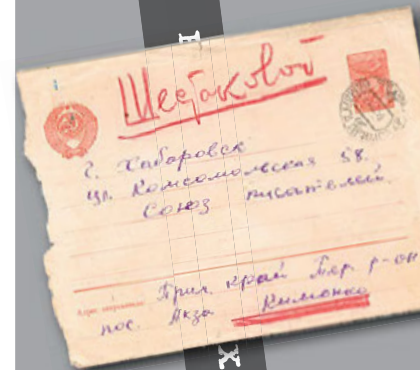 Шестаковой
г. Хабаровск
ул. Комсомольская 58.
Союз писателей.
Адрес отправителя:
Прим. край Тер. р-он
пос. Акза Кимонко